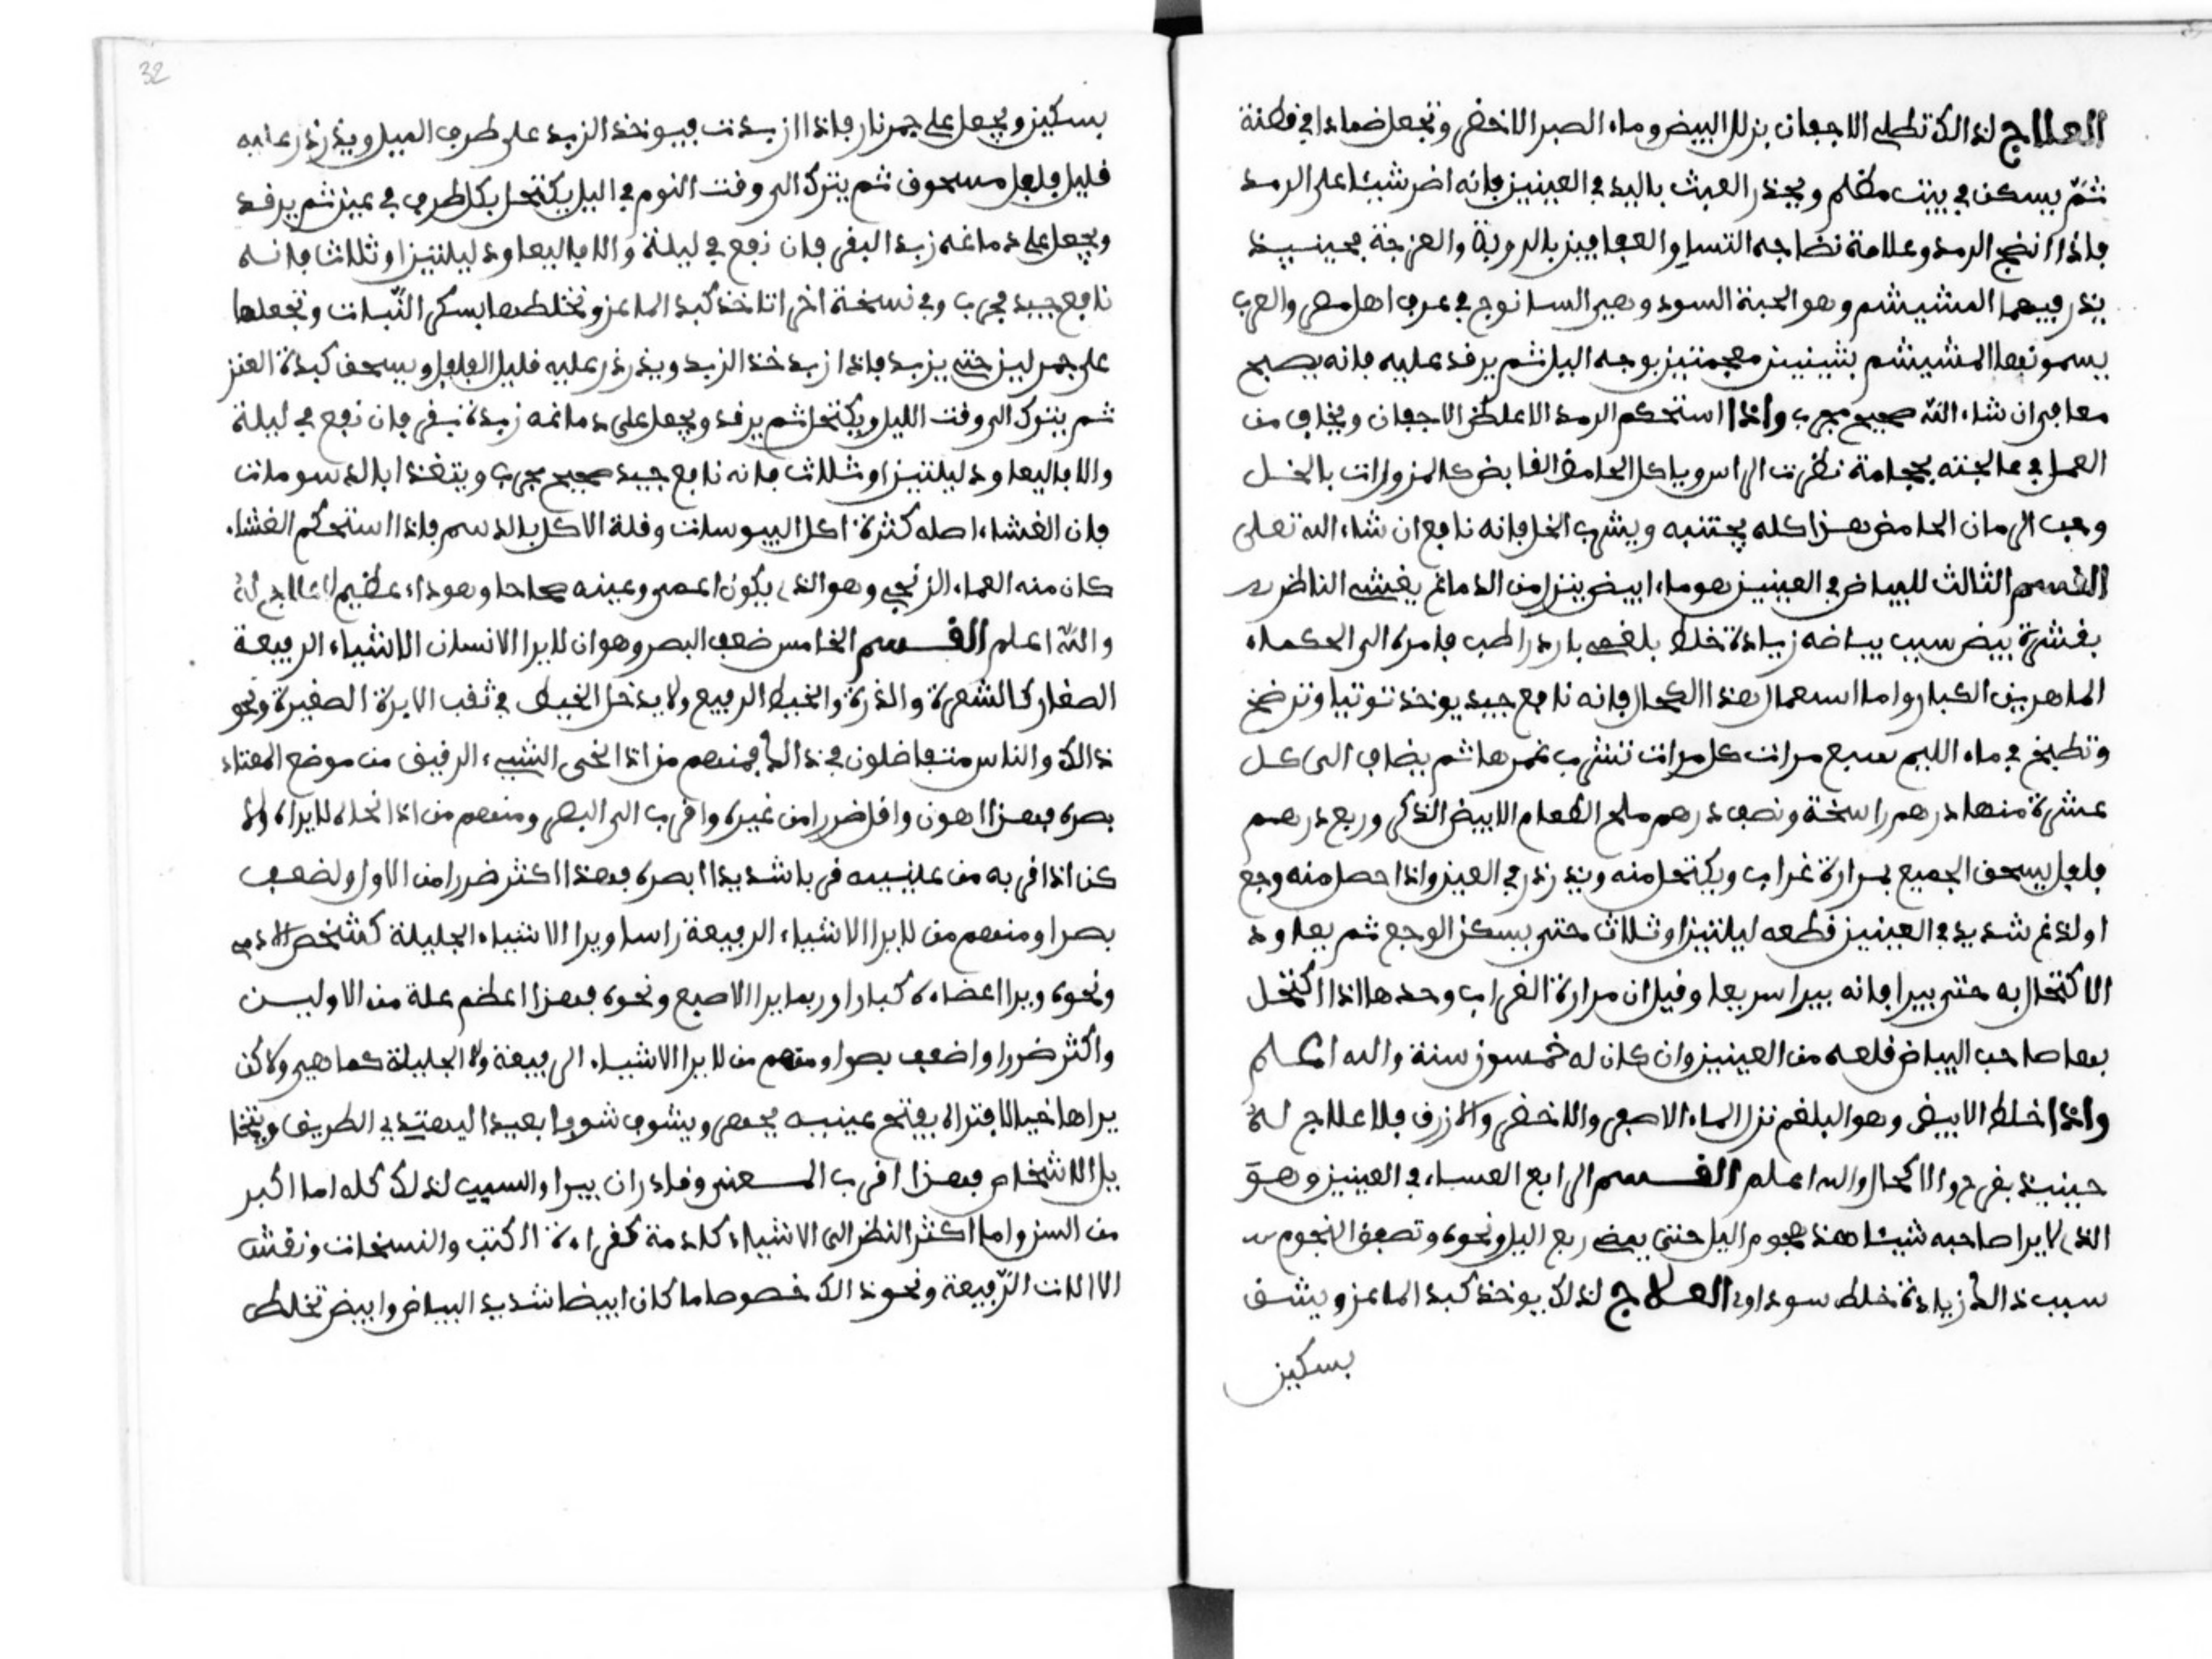 العلاج لذالك تطلى الاجفان بزلال البيض وماء الصبر الاخضر وتجعل ضمادا في قطنة
ثمّ يسكن في بيت مظلم ويحذر العبث باليد في العينين فإنه اضر شيئا على الرمد
فاذا انضج الرمد وعلامة نضاجه التساو والعفافين بالدوية والعزجة فحينيذ
يذر فيهما المشيشم وهو الحبة السود وهي السانوج في عرف اهل مصر والعرب
يسمونها المشيشم بشينين معجمتين بوجه اليل ثم يرقد عليه فانه يصبح
معافى ان شاء الله صحيح مجرب واذا استحكم الرمد الاعلظ الاجفان ويخاف من
العمل في عالجته بحجامة نقرت الراس وياكل الحامض القابض كالمزورات بالخل
وحب الرمان الحامض هزا كله يجتنبه ويشرب الخل فانه نافع ان شاء الله تعلى
القسم الثالث للبياض في العينين هو ماء ابيض ينزل من الدماغ يغشى الناظر
بقشرة بيض سبب بياضه زيادة خلط بلغمي بارد راطب فامره الى الحكماء
الماهرين الكبار واما اسعمال هذا الكحال فانه نافع جيد يوخذ توتيا وترضخ
وتطبخ في ماء الليم سبع مرات كل مرات تشرب غمرها ثم يضاف الى كل
عشرة منها درهم راسخة ونصف درهم ملح الطعام الابيض الذكي وربع درهم
فلفل يسحق الجميع بمرارة غراب ويكتحل منه ويذرذر في العين واذا حصل منه وجع
او لدغ شديد في العينين قطعه ليلتين او ثلاث حتى يسكن الوجع ثم يعاود
الاكتحال به حتى يبرا فانه يبرا سريعا وقيل ان مرارة الغراب وحدها اذا اكتحل
بها صاحب البياض قلعه من العينين وان كان له خمسون سنة والله اعلم
واذا خلط الابيض وهو البلغم نزل الماء الاصفر والاخضر والازرق فلا علاج له
حينيذ بقرح والاكحال والله اعلم القسم الرابع العساء في العينين وهو
الذي لا يرا صاحبه شيئا عند هجوم اليل حتى يمضي ربع اليل ونحوه وتصعف النجوم
سبب ذالك زيادة خلط سوداوي العلاج لذلك يوخذ كبد الماعز ويشق
بسكين
32
بسكين ويجعل على جمر نار فاذا ازبدت فيوخذ الزبد على طرف الميل ويذرذر عليه
قليل فلفل مسحوق ثم يترك الى وقت النوم في اليل يكتحل بكل طرف في عين ثم يرقد
ويجعل على دماغه زبد البقر فان نفع في ليلة والا فاليعاود ليلتين او ثلاثا فانه
نافع جيد مجرب وفي نسخة اخرا تاخذ كبد الماعز وتخلطها بسكر النّبات وتجعلها
على جمر لين حتى يزبد فاذا زبد خذ الزبد ويذرذر عليه قليل الفلفل ويسحق كبدة العنز
ثم يتوك الى وقت الليل ويكتحل ثم يرقد ويجعل على دماغه زبدة بقر فان نفع في ليلة
والا فاليعاود ليلتين او ثلاث فانه نافع جيد صحيح مجرب ويتغذا بالدسومات
فان الغشاء اصله كثرة اكل اليبوسات وقلة الاكل بالدسم فاذا استحكم الغشاء
كان منه العماء الزنجي وهو الذي يكون اعمى وعينه صحاحا وهو داء عظيم لا علاج له
والله اعلم القسم الخامس ضعف البصر وهو ان لا يرا الانسان الاشياء الرقيقة
الصغار كالشعرة والذرة والخيط الرقيق ولا يدخل الخيط في ثقب الابرة الصغيرة ونحو
ذالك والناس متفاضلون في ذالك فمنهم من اذا نحى الشيء الرقيق من موضع المعتاد
بصره فهزا اهون واقل ضررا من غيره واقرب الى البصر ومنهم من اذا نحاه لا يراه ولا
كن اذا قربه من عينيه قربا شديدا ابصره فهذا اكثر ضررا من الاول ولضعف
بصرا ومنهم من لا يرا الاشياء الرقيقة راسا ويرا الاشياء الجليلة كشخص الادمي
ونحوه ويرا اعضاءه كبارا وربما يرا الاصبع ونحوه فهزا اعظم علة من الاولين
واكثر ضررا واضعف بصرا ومنهم من لا يرا الاشياء الرقيقة ولا الجليلة كما هي ولا كن
يراها خيالا فتراه يفتح عينيه يحمض ويشوف شوفا بعيدا ليهتدي الطريق ويتخا
يل الاشخاص فهزا اقرب الى وقل ان يبرا والسبب لذلك كله اما اكبر
من السن واما اكثر النظر الى الاشياء كلدمة كقراءة الكتب والنسخات ونقش
الاالات الرّقيقة ونحو ذالك خصوصا ما كان ابيضا شديد البياض وابيض تخلط